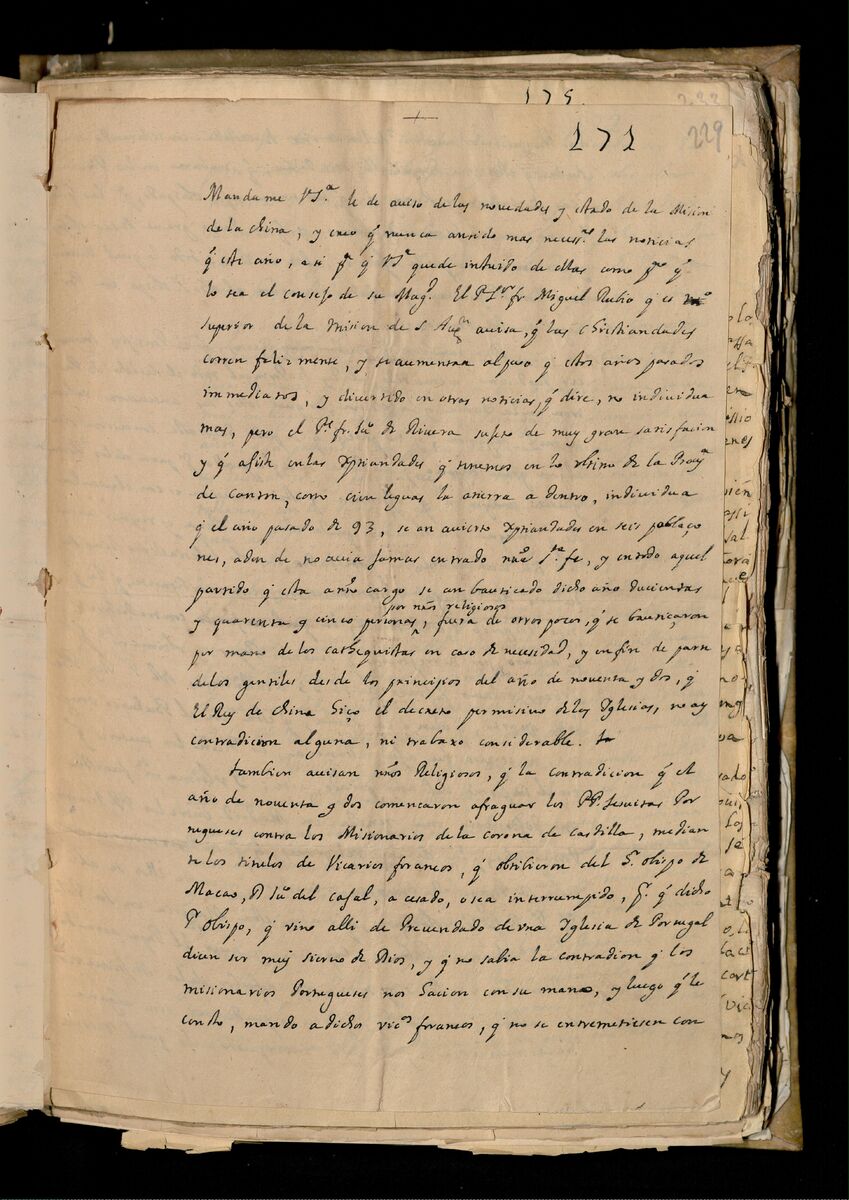 175.
+
171
229
Mandame VSª. le de aviso de las novedades y estado de la Mision
de la china, y creo q̃ nunca ansido mas necessªˢ las noticias
q̃ este año, a si pª q̃ VSª quede intruido de ellas como pª q̃
lo sea el consejo de su Magᵈ. El P Lᵒʳ fr Miguel Rubio q̃ es
superior de la Mision de S Augⁿ avisa, q̃ las christiandades
corren felizmente, y se aumentan al paso q̃ estos años pasados
immediatos, y divertido en otras noticias, q̃ dize, no individua
mas, pero el Pᵉ fr. Juº de Rivera sujeto de muy gran satisfacion
y q̃ asiste en las Xptiandades q̃ tenemos en lo ultimo de la Provª
de canton, como cien leguas la tierra a dentro, individua
q̃ el año pasado de 93, se an avierto Xptiandades en seis poblaço
nes, adonde no avia jamas entrado nrã Sᵗᵃ fe, y en todo aquel
partido q̃ esta a nrõ cargo se an bautiçado dicho año ducientas
y quarenta y cinco personas por nrõs religiosos, fuera de otros pocos, q̃ se bautiçaron
por mano de los cathequistas en caso de necesidad, y en fin de parte
de los gentiles desde los principios del año de noventa y dos, q̃
El Rey de China hiço el decreto permisivo de las Iglesias, no ay
contradicion alguna, ni trabaxo considerable.
tambien avisan nrõs Religiosos, q̃ la contradicion q̃ el
año de noventa y dos comencaron afraguar los PP. Jesuitas Por
tugueses contra los Misionarios de la corona de castilla, median
te los titulos de Vicarios foraneos, q̃ obtubieron del Sʳ. obispo de
Macao, D Juº del casal, a cesado, o sea interrumpido, pʳ. q̃ dicho
Sʳ obispo, q̃ vino alli de Prevendado de vna Iglesia de Portugal
dicen ser muy siervo de Dios, y q̃ no sabia la contradicion q̃ los
misionarios Portugueses nos hacian con su mano, y luego q̃ le
consto, mando a dichos vicºˢ foraneos, q̃ no se entremetiesen con